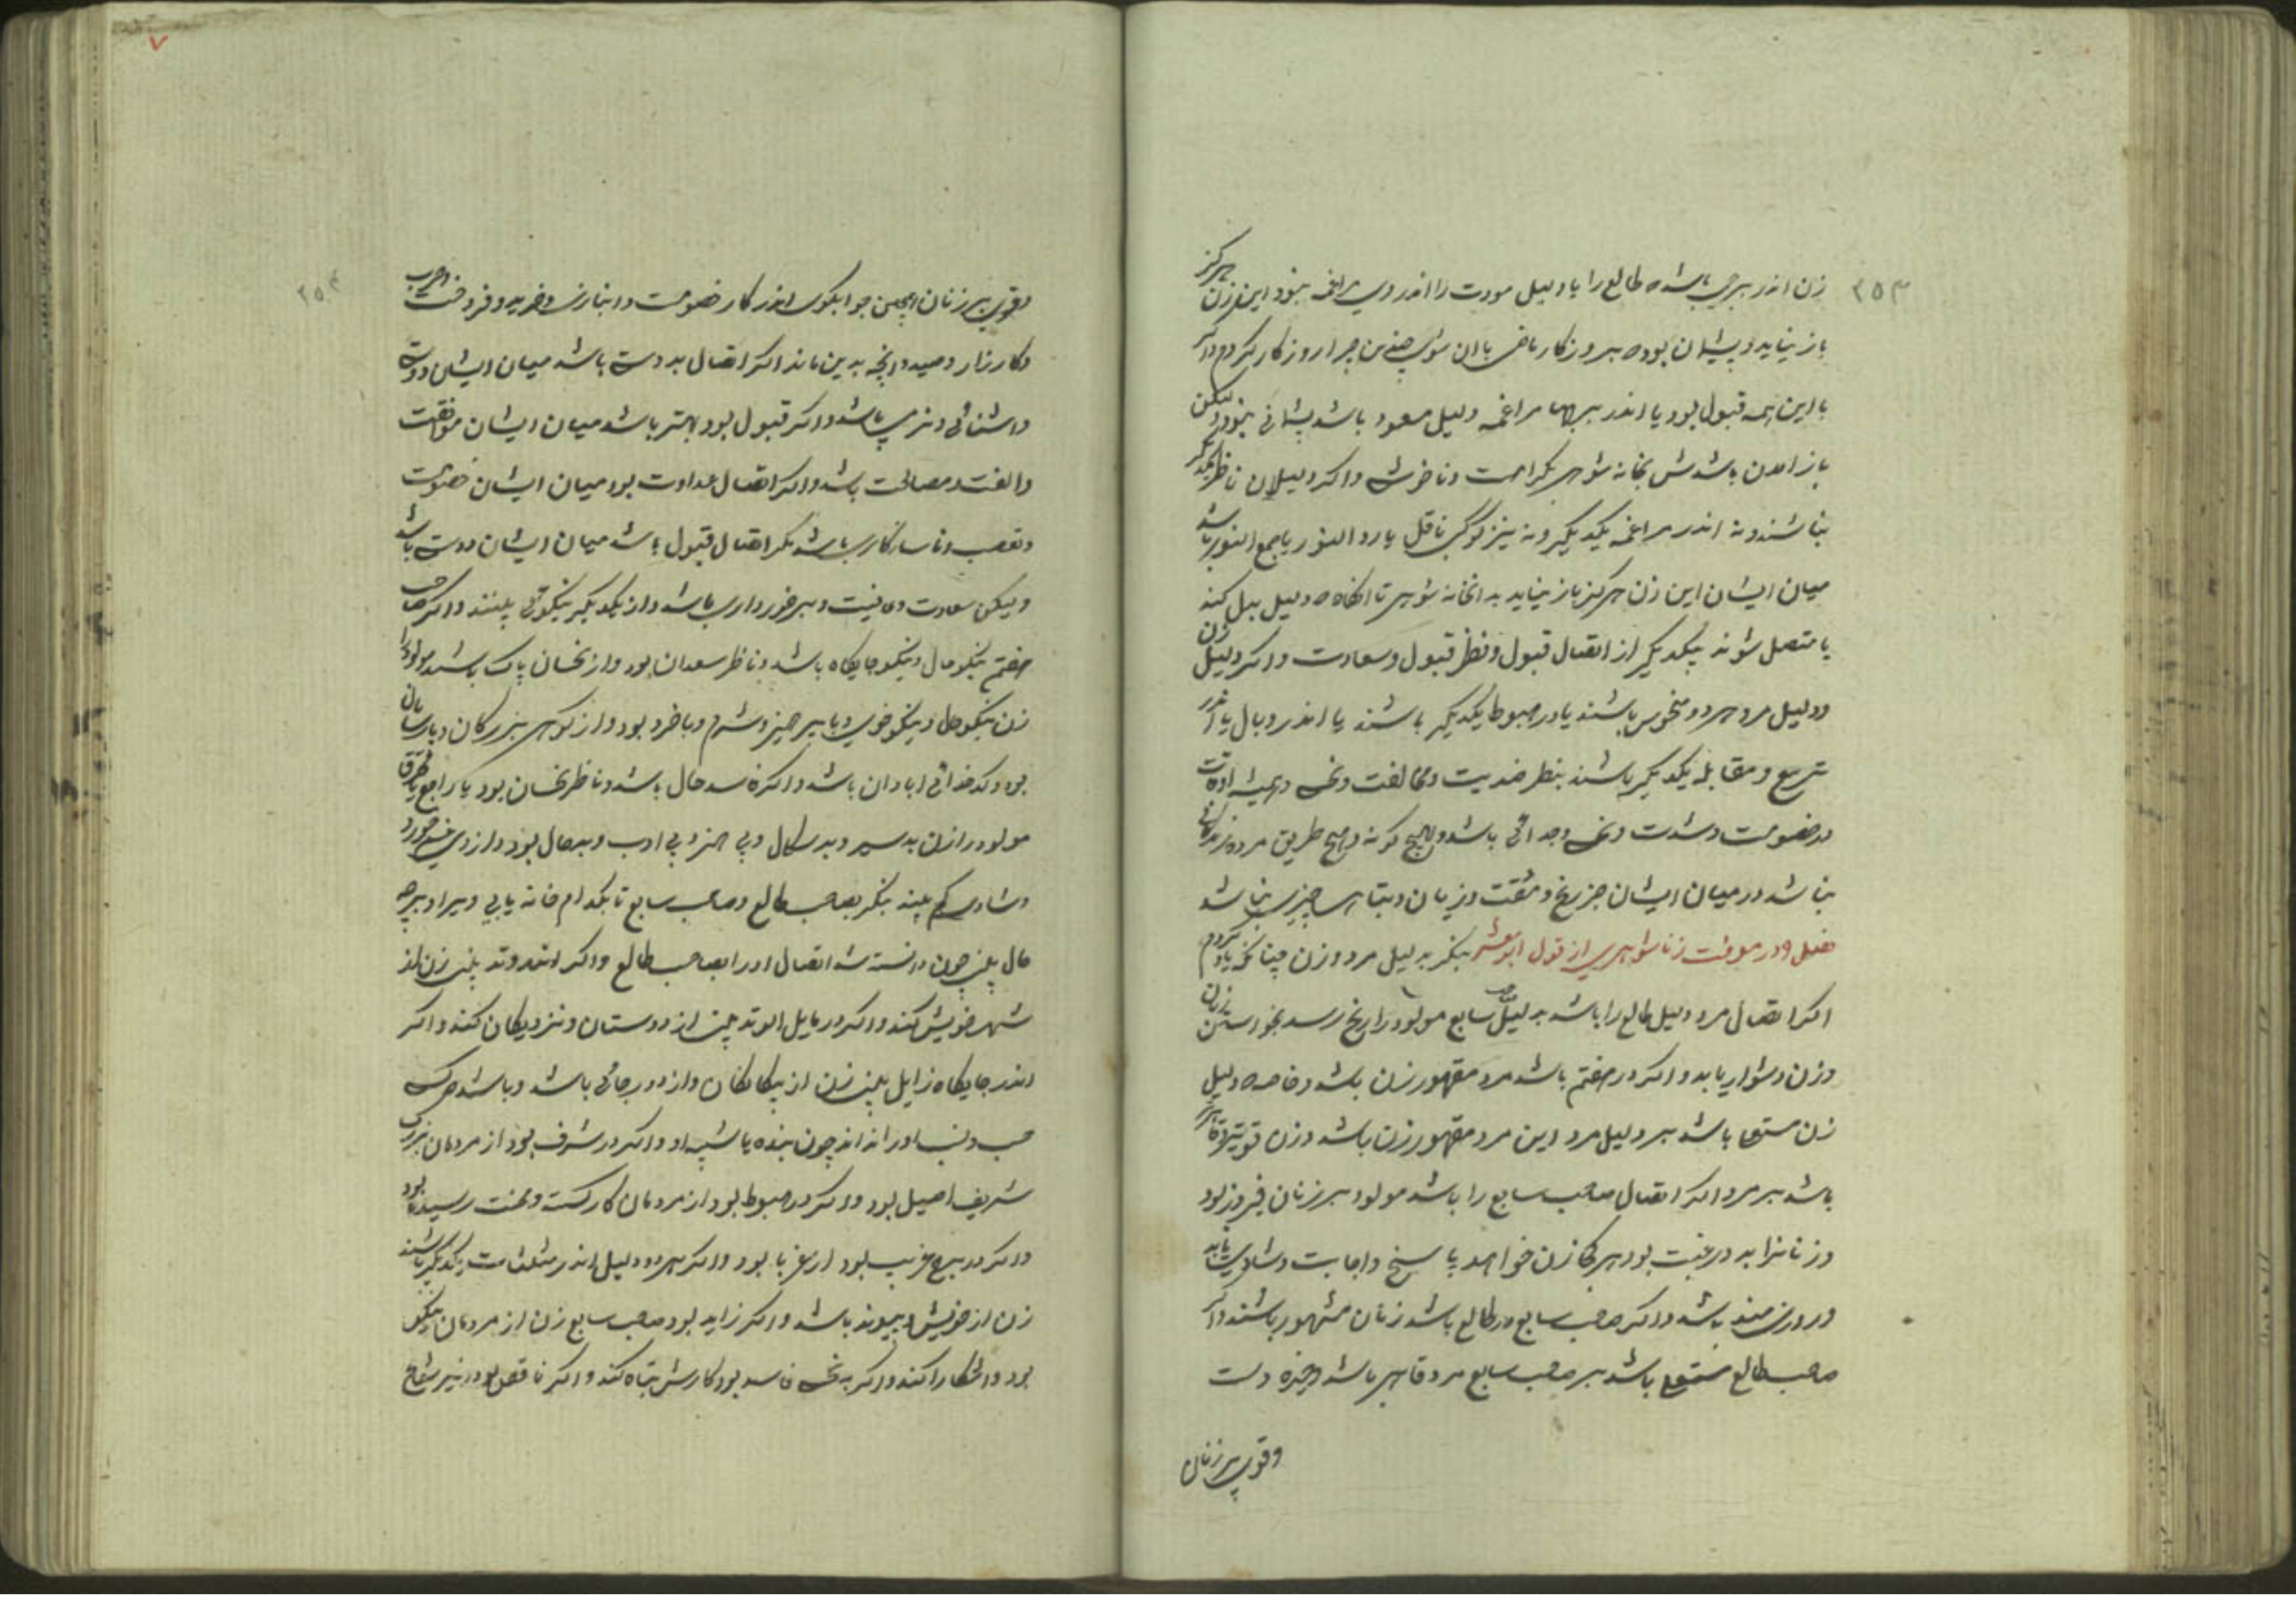 ۲۵۳
زن اندر برجی باشد که طالع را یا دلیل مودت را اندر وی مراغمه نبود این زن هرگز
باز نیاید و پشیمان بود که بروزکار ماضی با ان شوی چنین چرا روزکار کردم واکر
با این همه قبول بود یا اندر برجها مراغمه دلیل مسعود باشد پشیمانی نبود ولیکن
باز امدن باشدش بخانه شوهر بکراهت و ناخوشی واکر دلیلان ناظر یکدیگر
نباشند و نه اندر مراغمه یکدیگر و نه نیز کوکبی ناقل یا رد النور یا جمع النور باشد
میان ایشان این زن هرکز باز نیاید به انخانه شوهر تا انکاه که دلیل بدل کند
یا متصل شوند بیکدیگر از اتصال قبول و نظر قبول و سعادت واکر دلیل زن
ودلیل مرد هر دو منحوس باشند یا در هبوط یکدیگر باشند یا اندر وبال یا اندر
تربیع و مقابله یکدیگر باشند بنظر ضدیت و مخالفت ونحس و همیشه اوقات
در خصومت و شدت ونحس وجدائی باشد و بهیچ کونه و هیچ طریق مرد و زن
نباشد در میان ایشان جز رنج و مشقت و زیان و تباهی چیزی نباشد
فصل در معرفت زناشوهری از قول ابومعشر بنکر بدلیل مرد و زن چنانکه یاد کردم
اکر اتصال مرد دلیل طالع را باشد بدلیل صاحب سابع مولود را رنج رسد بخواستن زنان
وزن دشوار یابد واکر در هفتم باشد مرد مقهور زن باشد و خاصه که دلیل
زن مستعلی باشد بر دلیل مرد این مرد مقهور زن باشد وزن قویتر و قاهر
باشد بر مرد واکر اتصال صاحب سابع را باشد مولود بر زنان فیروز بود
وزنانرا بدو رغبت بود هر کجا زن خواهد پاسخ واجابت و شادی یابد
وروزی مند باشد واکر صاحب سابع در طالع باشد زنان مقهور باشند واکر
صاحب طالع مستعلی باشد بر صاحب سابع مرد قاهر باشد وچیره دست
وقوی بر زنان
۲۵۴
وقوی بر زنان همچنین جوابکوی اندر کار خصومت وانبازی وخرید وفروخت وحرب
وکارزار وصید وانچه بدین ماند اکر اتصال بدوستی باشد میان ایشان دوستی
واشنائی ونرمی باشد واکر قبول بود بهتر باشد میان ایشان موافقت
والفت ومصالحت باشد واکر اتصال عداوت بود میان ایشان خصومت
وتعصب وناسازکاری باشد مکر اتصال قبول باشد میان ایشان دوستی باشد
ولیکن سعادت وعافیت وبرخورداری باشد واز یکدیگر نیکوئی بینند واکر صاحب
هفتم نیکوحال ونیکو جایکاه باشد وناظر سعدان بود واز نحسان پاک باشد مولود را
زن نیکوحال ونیکو خوی وبا پرهیز وشرم وباخرد بود واز کوهر بزرکان وپارسایان
بود وکدخدائی ابادان باشد واکر فاسد حال باشد وناظر نحسان بود یا راجع یا محترق
مولود را زن بدسیر وبدسکال وبی هنر وبی ادب وبدحال بود واز وی غم خورد
وشادی کم بیند بنکر بصاحب طالع وصاحب سابع تا بکدام خانه یابی ویرا و بر چه
حال بینی چون دانسته شد اتصال او را بصاحب طالع واکر اندر وتد بینی زن از
شهر خویش کند واکر در مایل الوتد بینی از دوستان ونزدیکان کند واکر
اندر جایکاه زایل بینی زن از بیکانکان واز دور جائی باشد وباشد هر کسی
حسب ونسب او را نداند چون بنده یا شبیه او واکر در شرف بود از مردمان بزرک
شریف اصیل بود واکر در هبوط بود از مردمان کارکست ومحنت رسیده بود
واکر در برج غریب بود از غربا بود واکر هر دو دلیل اندر مثلثات یکدیگر باشند
زن از خویش وپیوند باشد واکر زاید بود صاحب سابع زن از مردمان نیکو
بود واشکارا کند واکر به نحس فاسد بود کارش تباه کند واکر ناقص بود در سیر